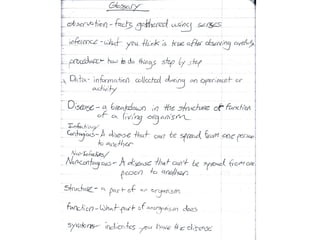 Glossary
observation - facts gathered using senses
inference - what you think is true after observing carefully
procedure - how to do things step by step
Data - information collected during an experiment or
activity
Disease - a breakdown in the structure or function
of a living organism
Infectious/
Contagious - A disease that can be spread from one person
to another
Non-Infectious/
Noncontagious - A disease that can't be spread from one
person to another.
Structure - a part of an organism
function - What part of an organism does
symptoms - indicates you have the disease